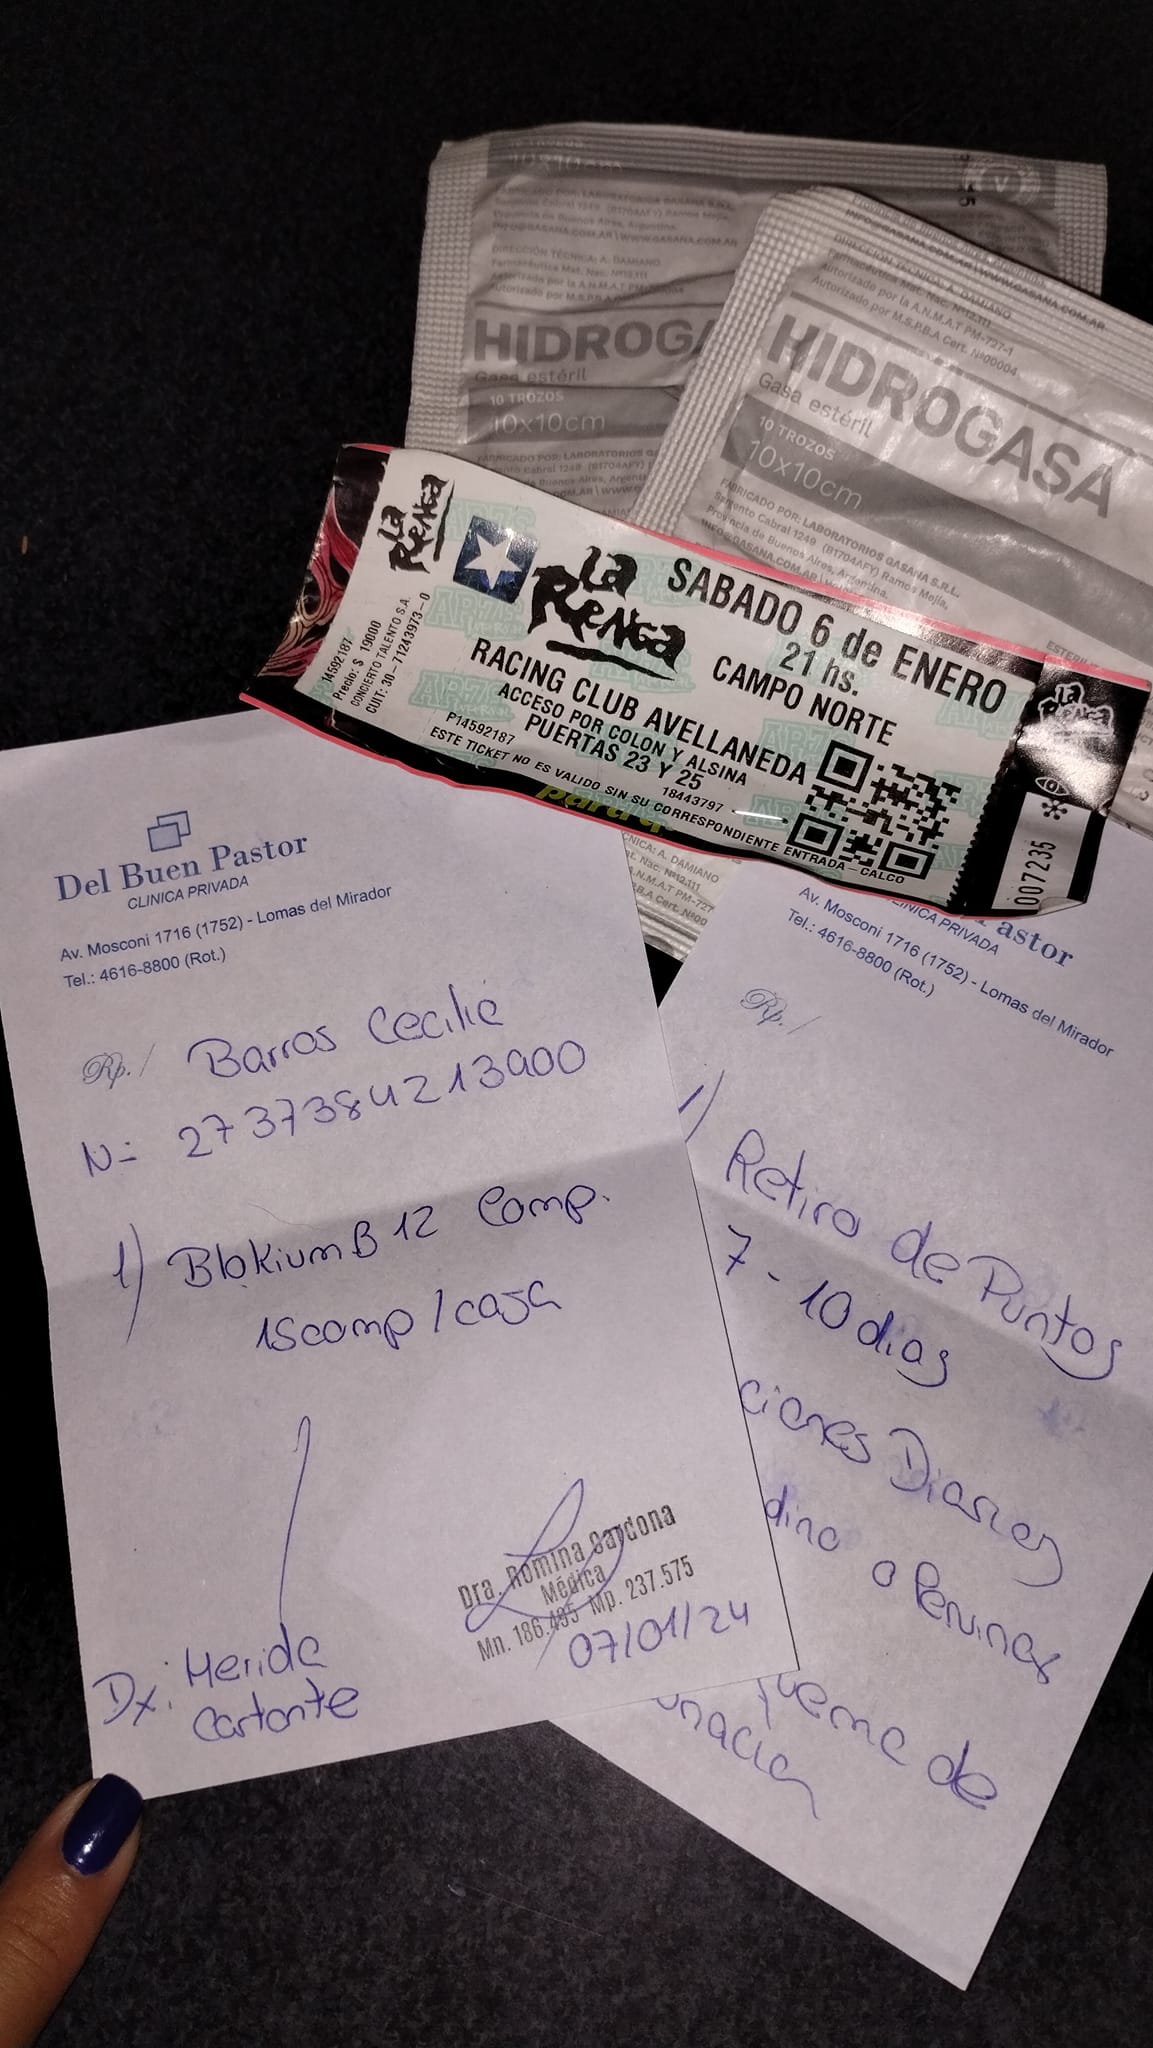 10x10cm
INFO@GASANA.COM.AR \ WWW.GASANA.COM.AR
DIRECCIÓN TÉCNICA: A. DAMIANO
Farmacéutica Mat. Nac. Nº12.111
Autorizado por la A.N.M.A.T
HIDROGA
Gasa estéril
10 TROZOS
10x10cm
INFO@GASANA.COM.AR \ WWW.GASANA.COM.AR
DIRECCIÓN TÉCNICA: A. DAMIANO
Farmacéutica Mat. Nac. Nº12.111
Autorizado por la A.N.M.A.T PM-727-1
Autorizado por M.S.P.B.A Cert. Nº00004
HIDROGASA
Gasa estéril
10 TROZOS
10x10cm
FABRICADO POR: LABORATORIOS GASANA S.R.L.
Sargento Cabral 1249 (B1704AFY) Ramos Mejía,
Provincia de Buenos Aires, Argentina.
La Renga
14592187
Precio: $ 19000
CONCIERTO TALENTO S.A.
CUIT: 30-71243973-0
La Renga
SABADO 6 de ENERO
21 hs.
CAMPO NORTE
RACING CLUB AVELLANEDA
ACCESO POR COLON Y ALSINA
PUERTAS 23 Y 25
P14592187
18443797
ESTE TICKET NO ES VALIDO SIN SU CORRESPONDIENTE ENTRADA-CALCO
La Renga
007235
Del Buen Pastor
CLINICA PRIVADA
Av. Mosconi 1716 (1752) - Lomas del Mirador
Tel.: 4616-8800 (Rot.)
Rp./ Barros Cecilia
N= 2737384213900
1) Blokium B12 Comp.
15comp/caja
Dra. Romina Cardona
Médica
Mn. 186.495 Mp. 237.575
07/01/24
Dx: Herida
Cortante
astor
CLINICA PRIVADA
Av. Mosconi 1716 (1752) - Lomas del Mirador
Tel.: 4616-8800 (Rot.)
Rp./
1) Retiro de Puntos
7-10 dias
ciones Diarias
dino o Pervinox
quema de
unacion